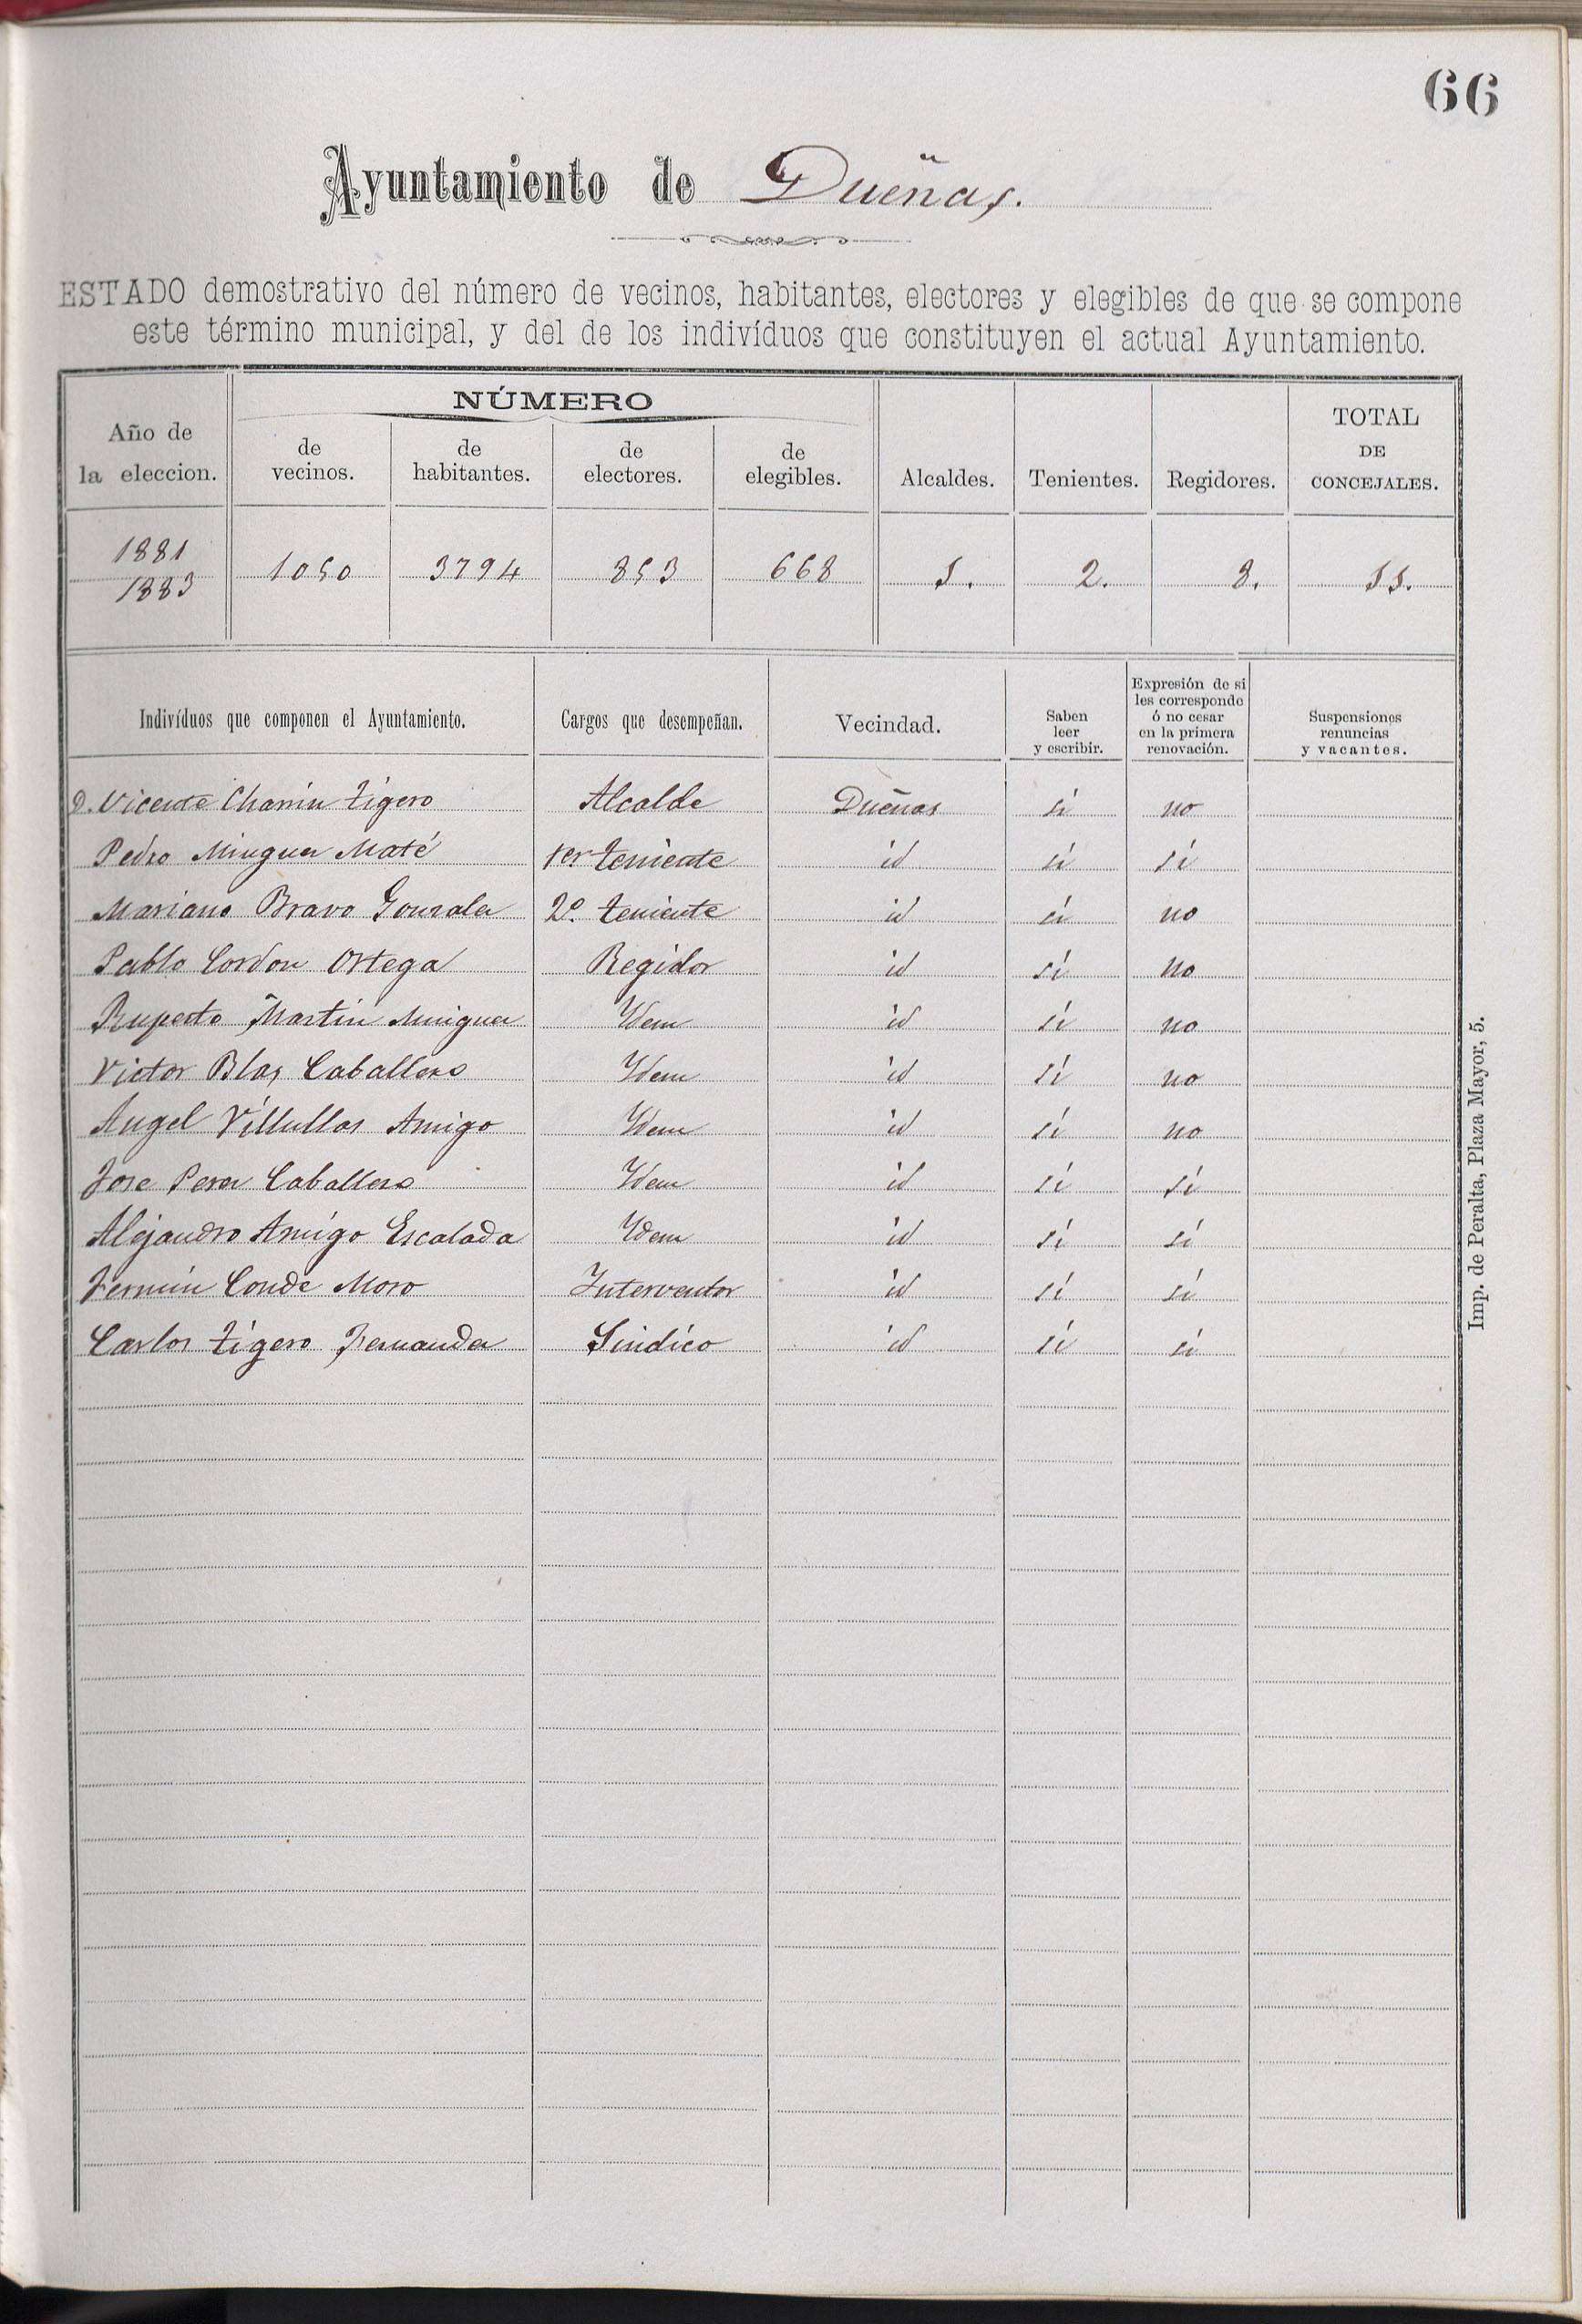 66
Ayuntamiento de Dueñas.
ESTADO demostrativo del número de vecinos, habitantes, electores y elegibles de que se compone
este término municipal, y del de los indivíduos que constituyen el actual Ayuntamiento.
Año de la eleccion. NÚMERO de vecinos. de habitantes. de electores. de elegibles. Alcaldes. Tenientes. Regidores. TOTAL DE CONCEJALES.
1881
1883 1050 3794 853 668 1. 2. 8. 11.
Indivíduos que componen el Ayuntamiento. Cargos que desempeñan. Vecindad. Saben leer y escribir. Expresión de si les corresponde ó no cesar en la primera renovación. Suspensiones renuncias y vacantes.
D. Vicente Charrin Tigero Alcalde Dueñas si no
Pedro Minguez Maté 1er teniente id si si
Mariano Bravo Gonzalez 2º teniente id si no
Pablo Cordon Ortega Regidor id si no
Ruperto Martin Minguez Idem id si no
Victor Blas Caballero Idem id si no
Angel Villullas Amigo Idem id si no
Jose Perez Caballero Idem id si si
Alejandro Amigo Escalada Idem id si si
Fermin Conde Moro Interventor id si si
Carlos Tigero Fernandez Sindico id si si
Imp. de Peralta, Plaza Mayor, 5.